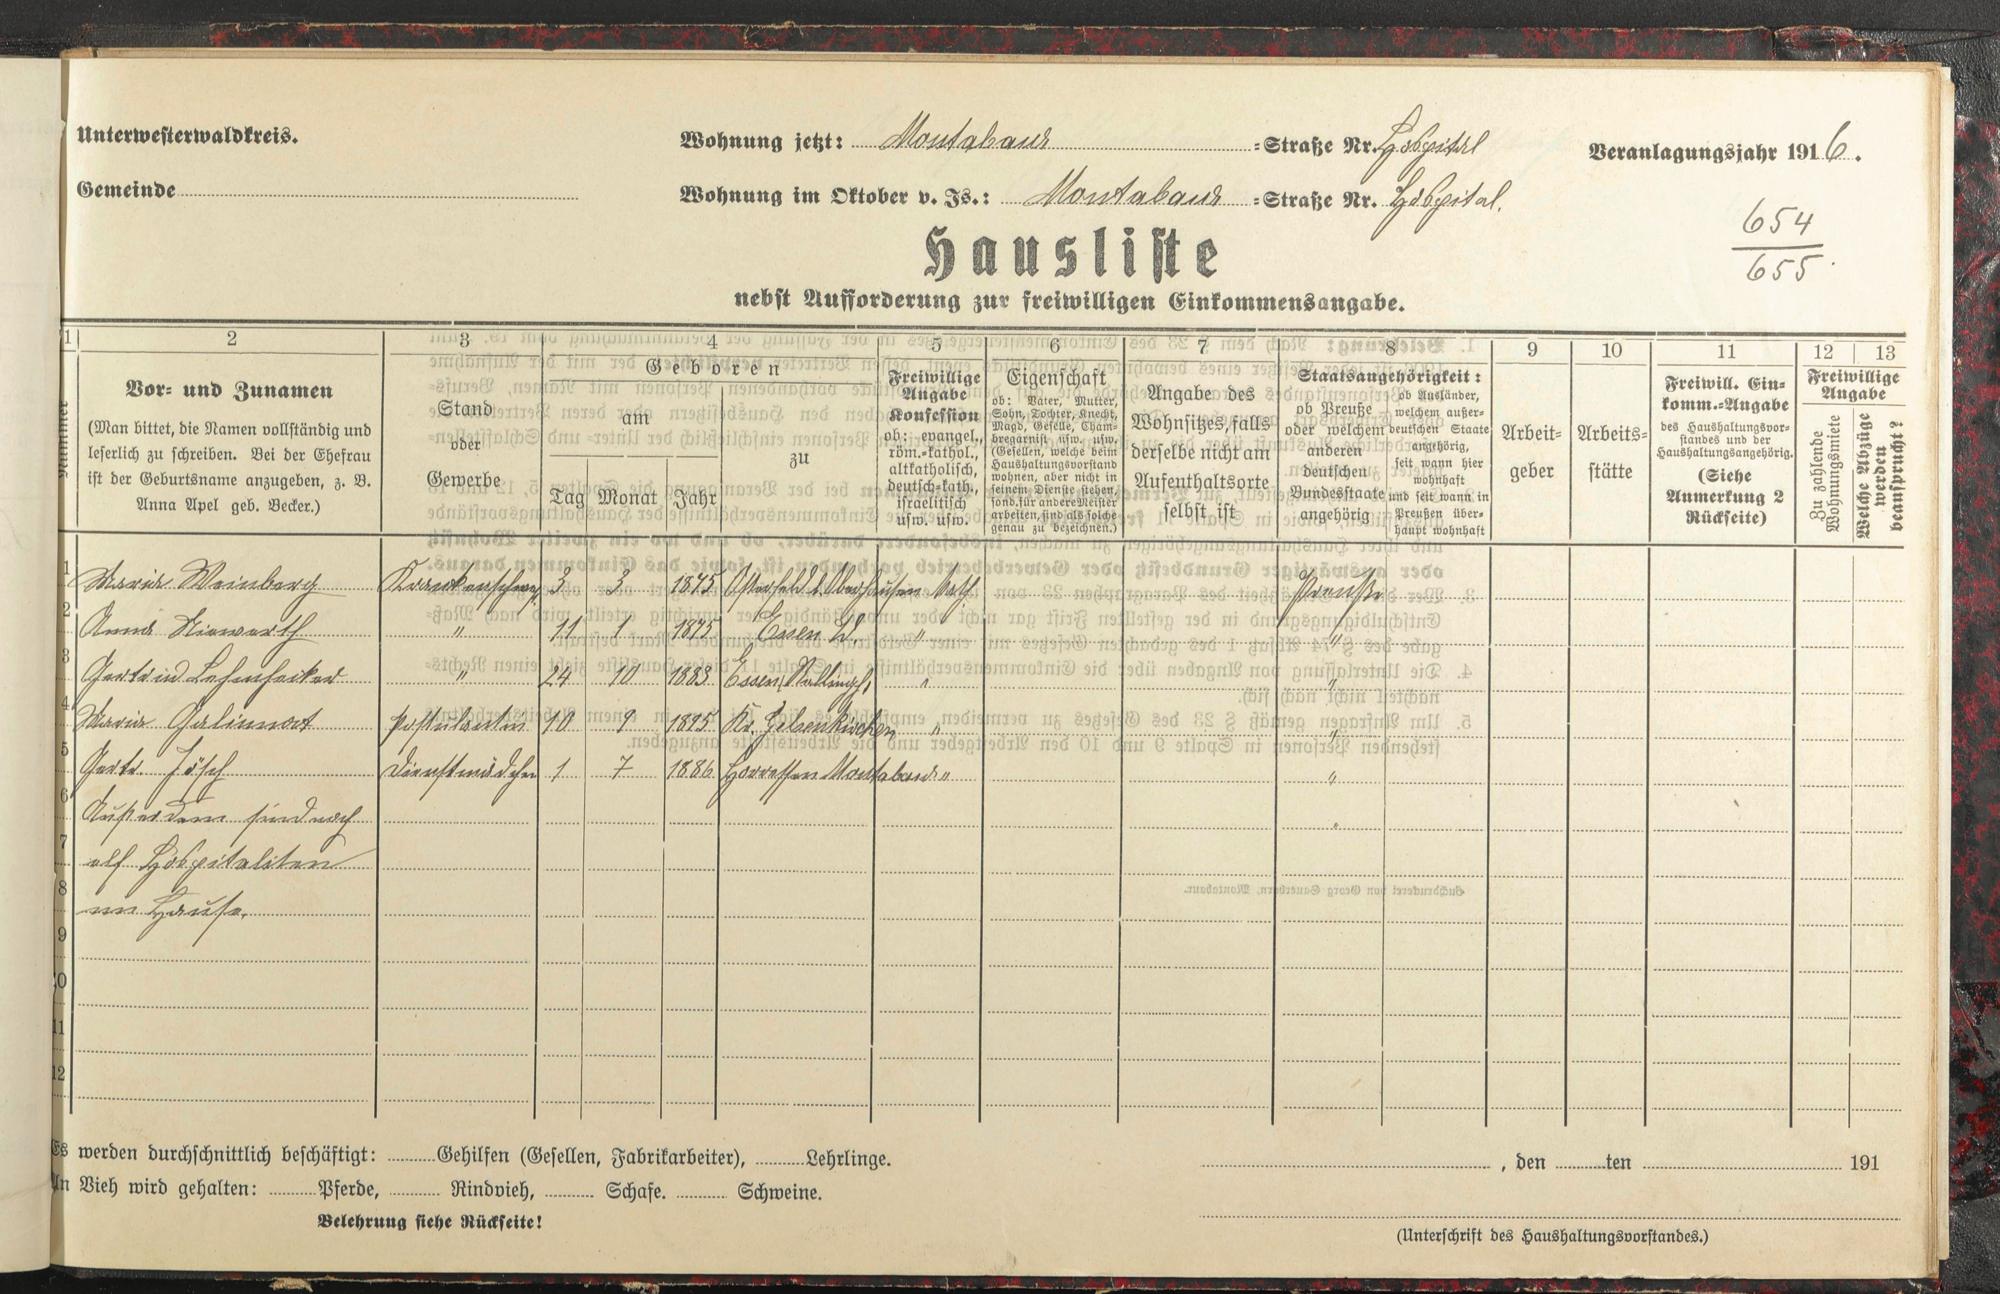 Unterwesterwaldkreis.
Wohnung jetzt: Montabaur =Straße Nr. Hospital
Veranlagungsjahr 1916.
Gemeinde
Wohnung im Oktober v. Js.: Montabaur =Straße Nr. Hospital.
654
655.
Hausliste
nebst Aufforderung zur freiwilligen Einkommensangabe.
1 2 3 4 5 6 7 8 9 10 11 12 13
Nummer
Vor- und Zunamen
(Man bittet, die Namen vollständig und
leserlich zu schreiben. Bei der Ehefrau
ist der Geburtsname anzugeben, z. B.
Anna Apel geb. Becker.)
Stand
oder
Gewerbe
Geboren
am
Tag Monat Jahr
zu
Freiwillige
Angabe
Konfession
ob: evangel.,
röm.-kathol.,
altkatholisch,
deutsch-kath.,
israelitisch
usw. usw.
Eigenschaft
ob: Vater, Mutter,
Sohn, Tochter, Knecht,
Magd, Geselle, Cham-
bregarnist usw. usw.
(Gesellen, welche beim
Haushaltungsvorstand
wohnen, aber nicht in
seinem Dienste stehen,
sond. für andere Meister
arbeiten, sind als solche
genau zu bezeichnen.)
Angabe des
Wohnsitzes, falls
derselbe nicht am
Aufenthaltsorte
selbst ist
Staatsangehörigkeit:
ob Preuße
oder welchem
anderen
deutschen
Bundesstaate
angehörig
ob Ausländer,
welchem außer-
deutschen Staate
angehörig,
seit wann hier
wohnhaft
und seit wann in
Preußen über-
haupt wohnhaft
Arbeit-
geber
Arbeits-
stätte
Freiwill. Ein-
komm.-Angabe
des Haushaltungsvor-
standes und der
Haushaltungsangehörig.
(Siehe
Anmerkung 2
Rückseite)
Freiwillige
Angabe
Zu zahlende
Wohnungsmiete
Welche Abzüge
werden
beansprucht?
1 Maria Weinberg 3 3 1875 Osterfeld b. Oberhausen Kath. Preuße
2 Anna " 11 1 1875 Essen " "
3 Gertrud " 24 10 1883 Essen " "
4 Maria Postulantin 10 9 1895 Kr. Geilenkirchen " "
5 Gertr. Jösch Dienstmädchen 1 7 1886 Horressen Montabaur " "
6 Außerdem sind noch "
7 elf Hospitaliten
8 im Hause.
9
10
11
12
Es werden durchschnittlich beschäftigt: Gehilfen (Gesellen, Fabrikarbeiter), Lehrlinge.
An Vieh wird gehalten: Pferde, Rindvieh, Schafe. Schweine.
Belehrung siehe Rückseite!
, den ten 191
(Unterschrift des Haushaltungsvorstandes.)